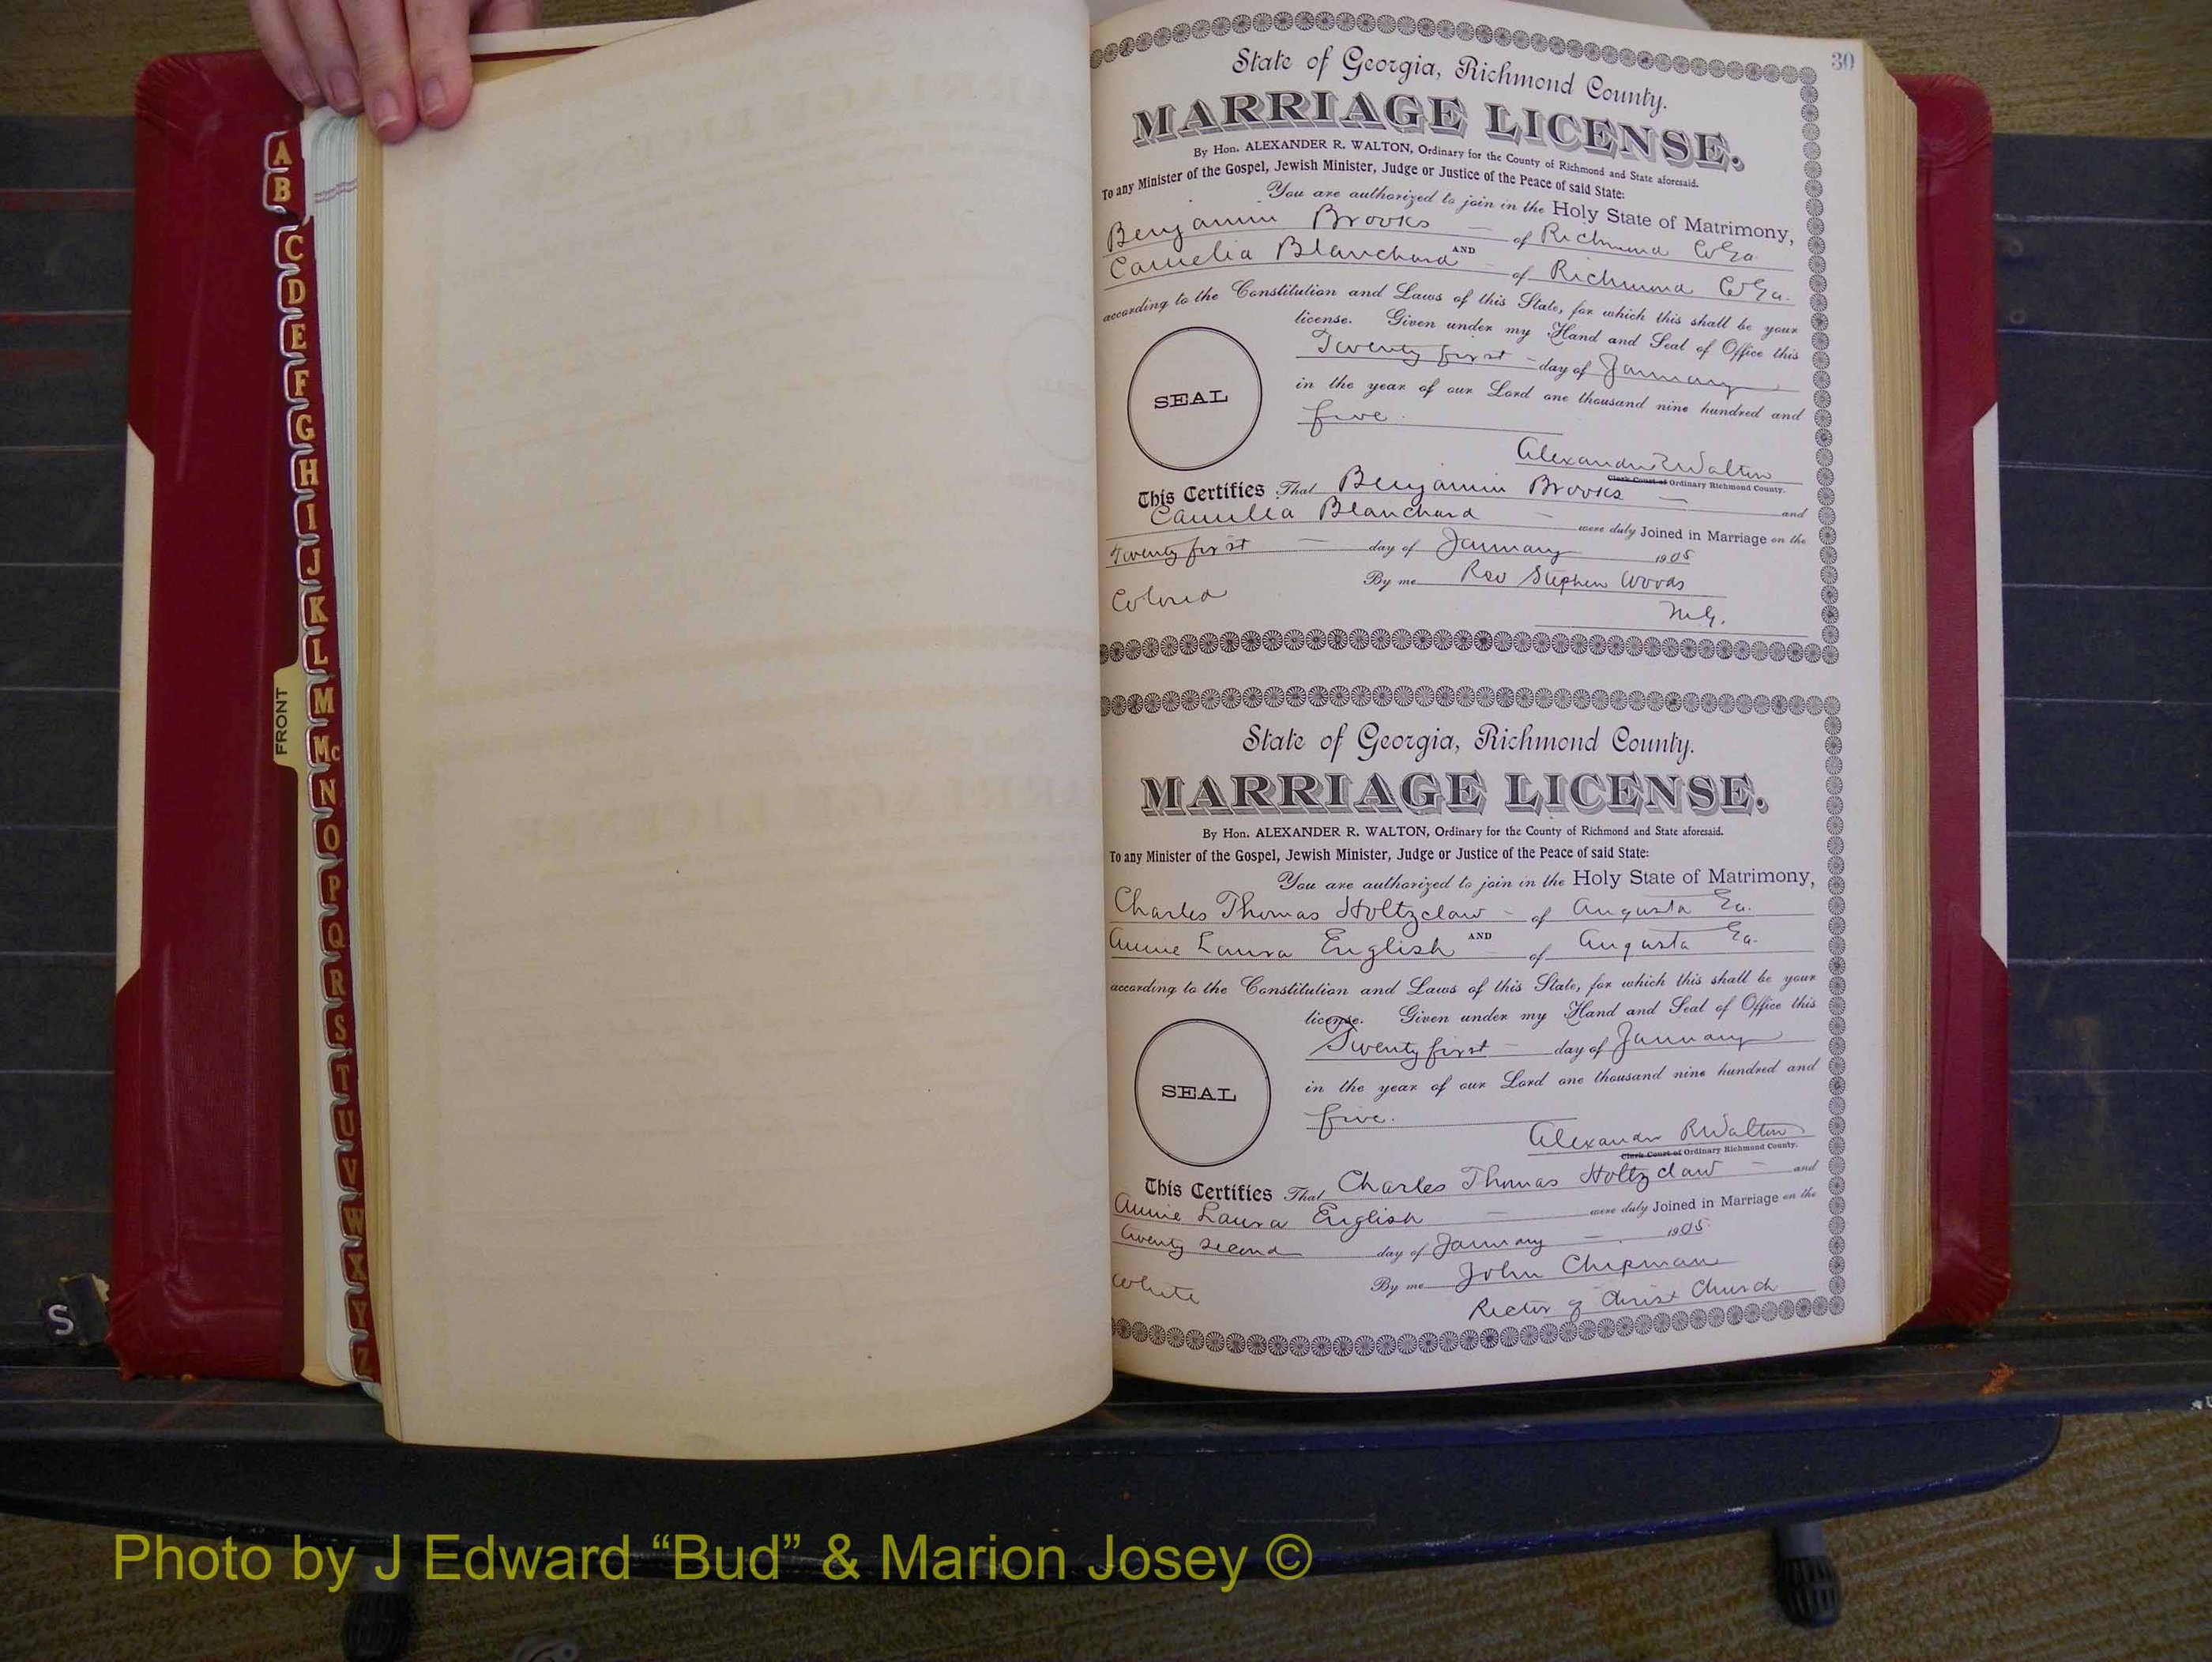 A
B
C
D
E
F
G
H
I
J
K
L
M
Mc
N
O
P
Q
R
S
T
U
V
W
X
Y
Z
FRONT
S
30
State of Georgia, Richmond County.
MARRIAGE LICENSE.
By Hon. ALEXANDER R. WALTON, Ordinary for the County of Richmond and State aforesaid.
To any Minister of the Gospel, Jewish Minister, Judge or Justice of the Peace of said State:
You are authorized to join in the Holy State of Matrimony,
Benjamin Brooks — of Richmond Co Ga
AND
Camelia Blanchard — of Richmond Co Ga.
according to the Constitution and Laws of this State, for which this shall be your
license. Given under my Hand and Seal of Office this
Twenty first — day of January
in the year of our Lord one thousand nine hundred and
five.
SEAL
Alexander R Walton
Clerk Court of Ordinary Richmond County.
This Certifies That Benjamin Brooks — and
Camelia Blanchard — were duly Joined in Marriage on the
Twenty first — day of January 1905
By me Rev Stephen Woods
Colored
M.G.
State of Georgia, Richmond County.
MARRIAGE LICENSE.
By Hon. ALEXANDER R. WALTON, Ordinary for the County of Richmond and State aforesaid.
To any Minister of the Gospel, Jewish Minister, Judge or Justice of the Peace of said State:
You are authorized to join in the Holy State of Matrimony,
Charles Thomas Holtzclaw — of Augusta Ga.
AND
Annie Laura English — of Augusta Ga.
according to the Constitution and Laws of this State, for which this shall be your
license. Given under my Hand and Seal of Office this
Twenty first — day of January
in the year of our Lord one thousand nine hundred and
five.
SEAL
Alexander R Walton
Clerk Court of Ordinary Richmond County.
This Certifies That Charles Thomas Holtzclaw — and
Annie Laura English — were duly Joined in Marriage on the
twenty second day of January — 1905
By me John Chipman
White
Rector of Christ Church
Photo by J Edward “Bud” & Marion Josey ©